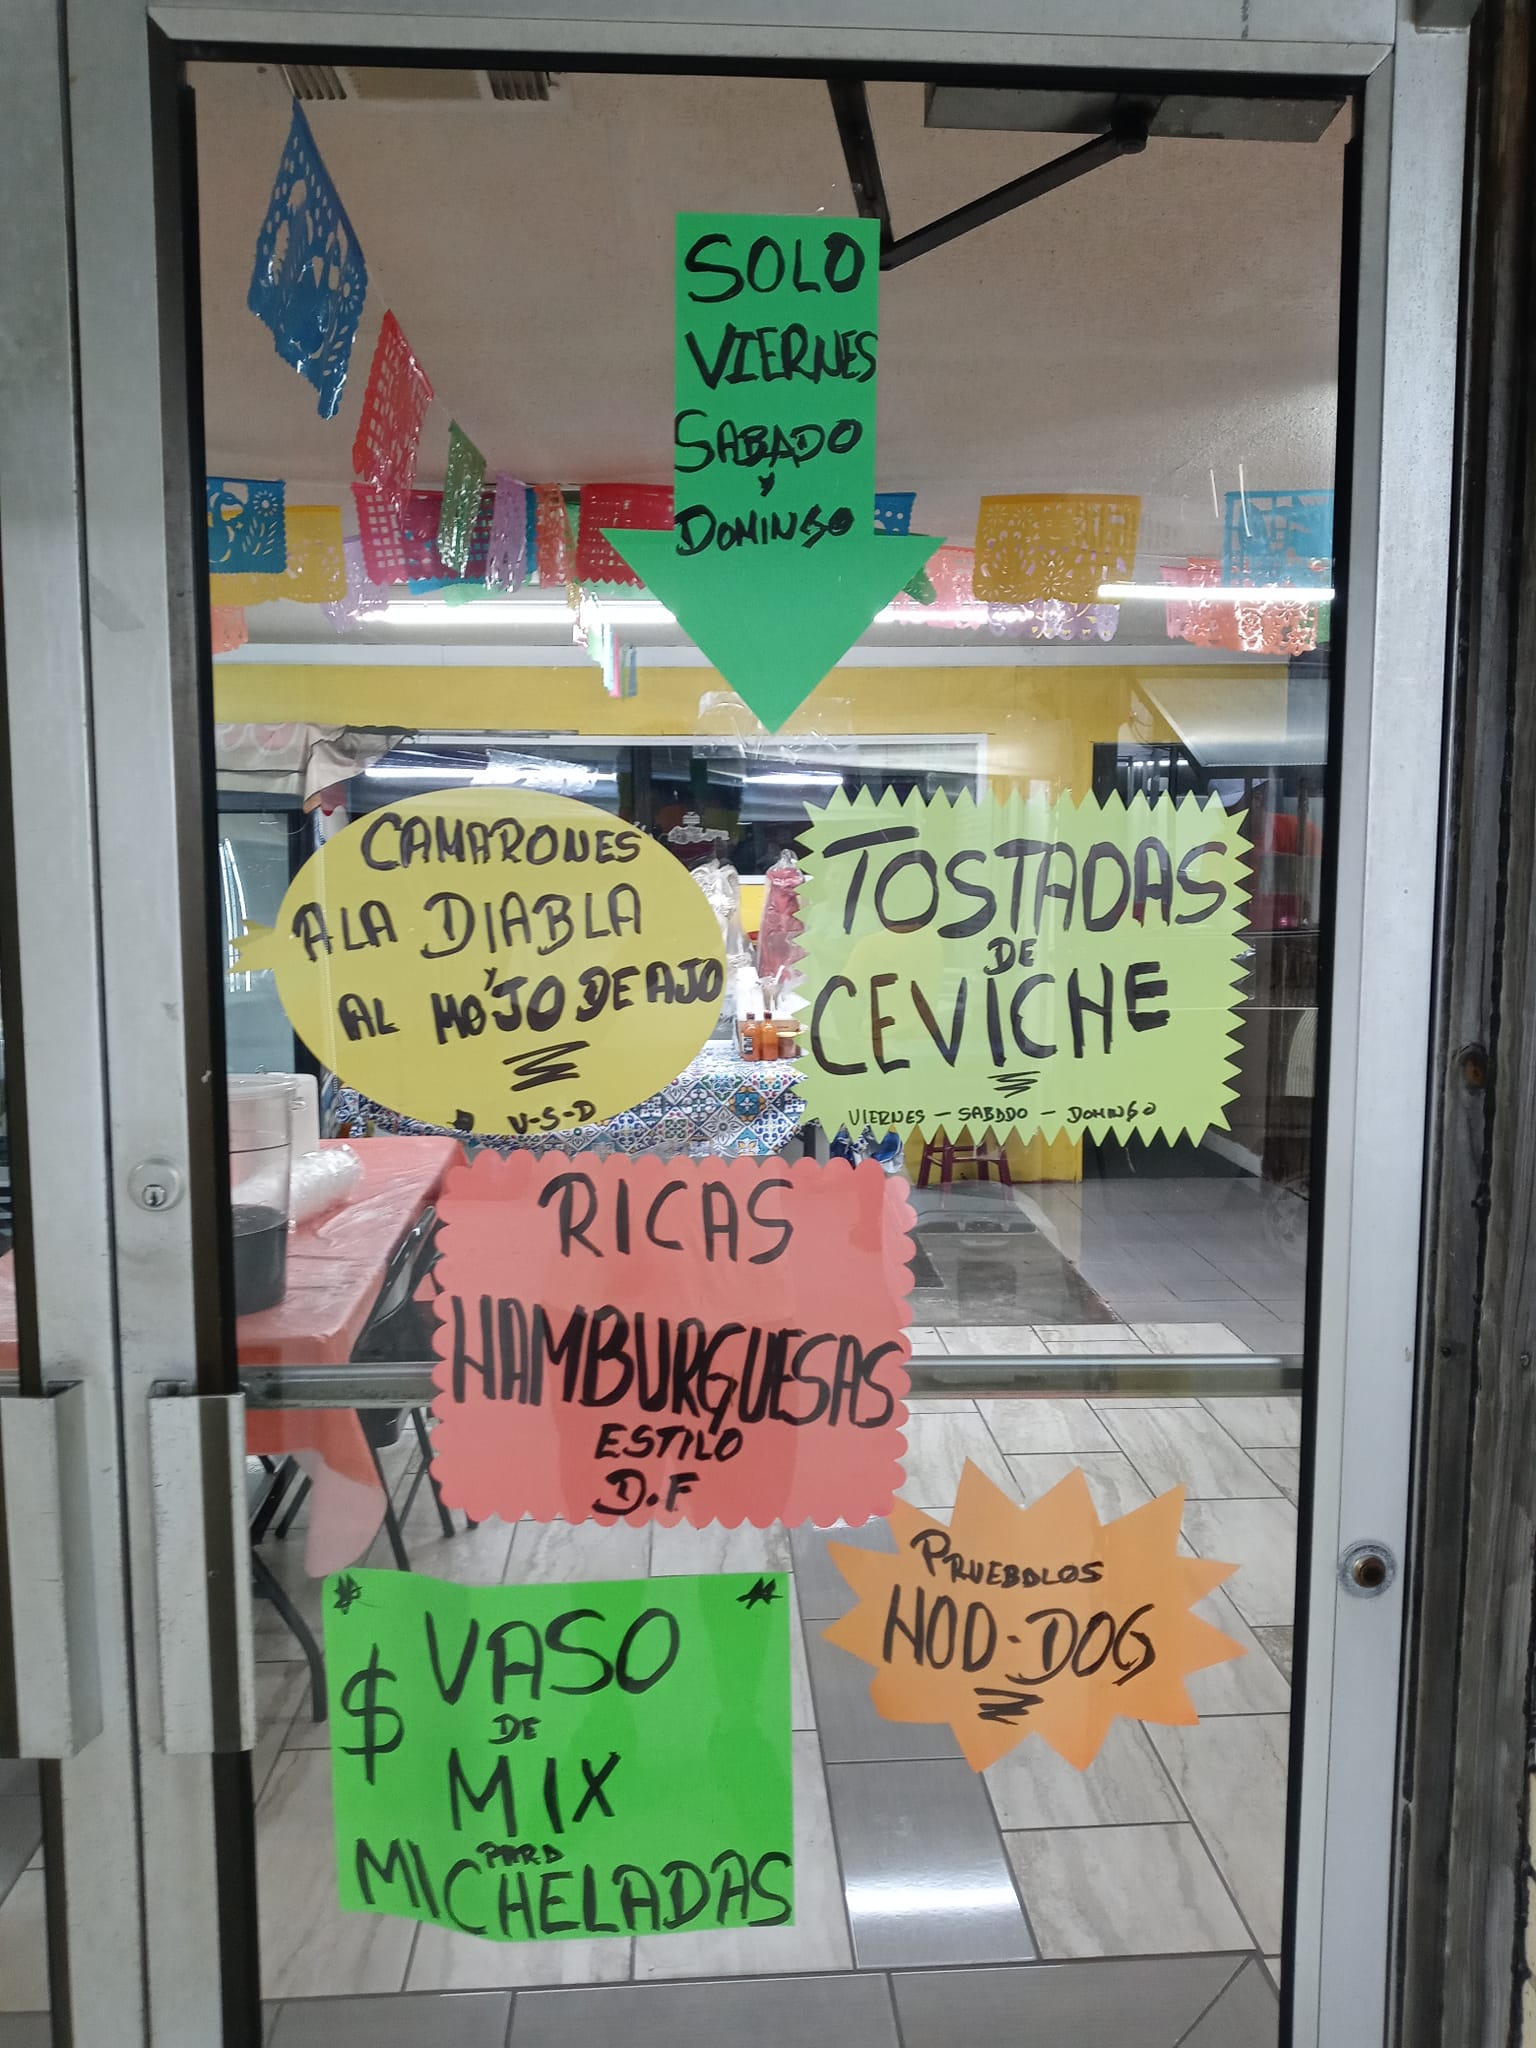 SOLO
VIERNES
SABADO
Y
DOMINGO
CAMARONES
A LA DIABLA
Y
AL MOJO DE AJO
V-S-D
TOSTADAS
DE
CEVICHE
VIERNES - SABADO - DOMINGO
RICAS
HAMBURGUESAS
ESTILO
D.F
PRUEBALOS
HOD-DOG
$ VASO
DE
MIX
PARA
MICHELADAS